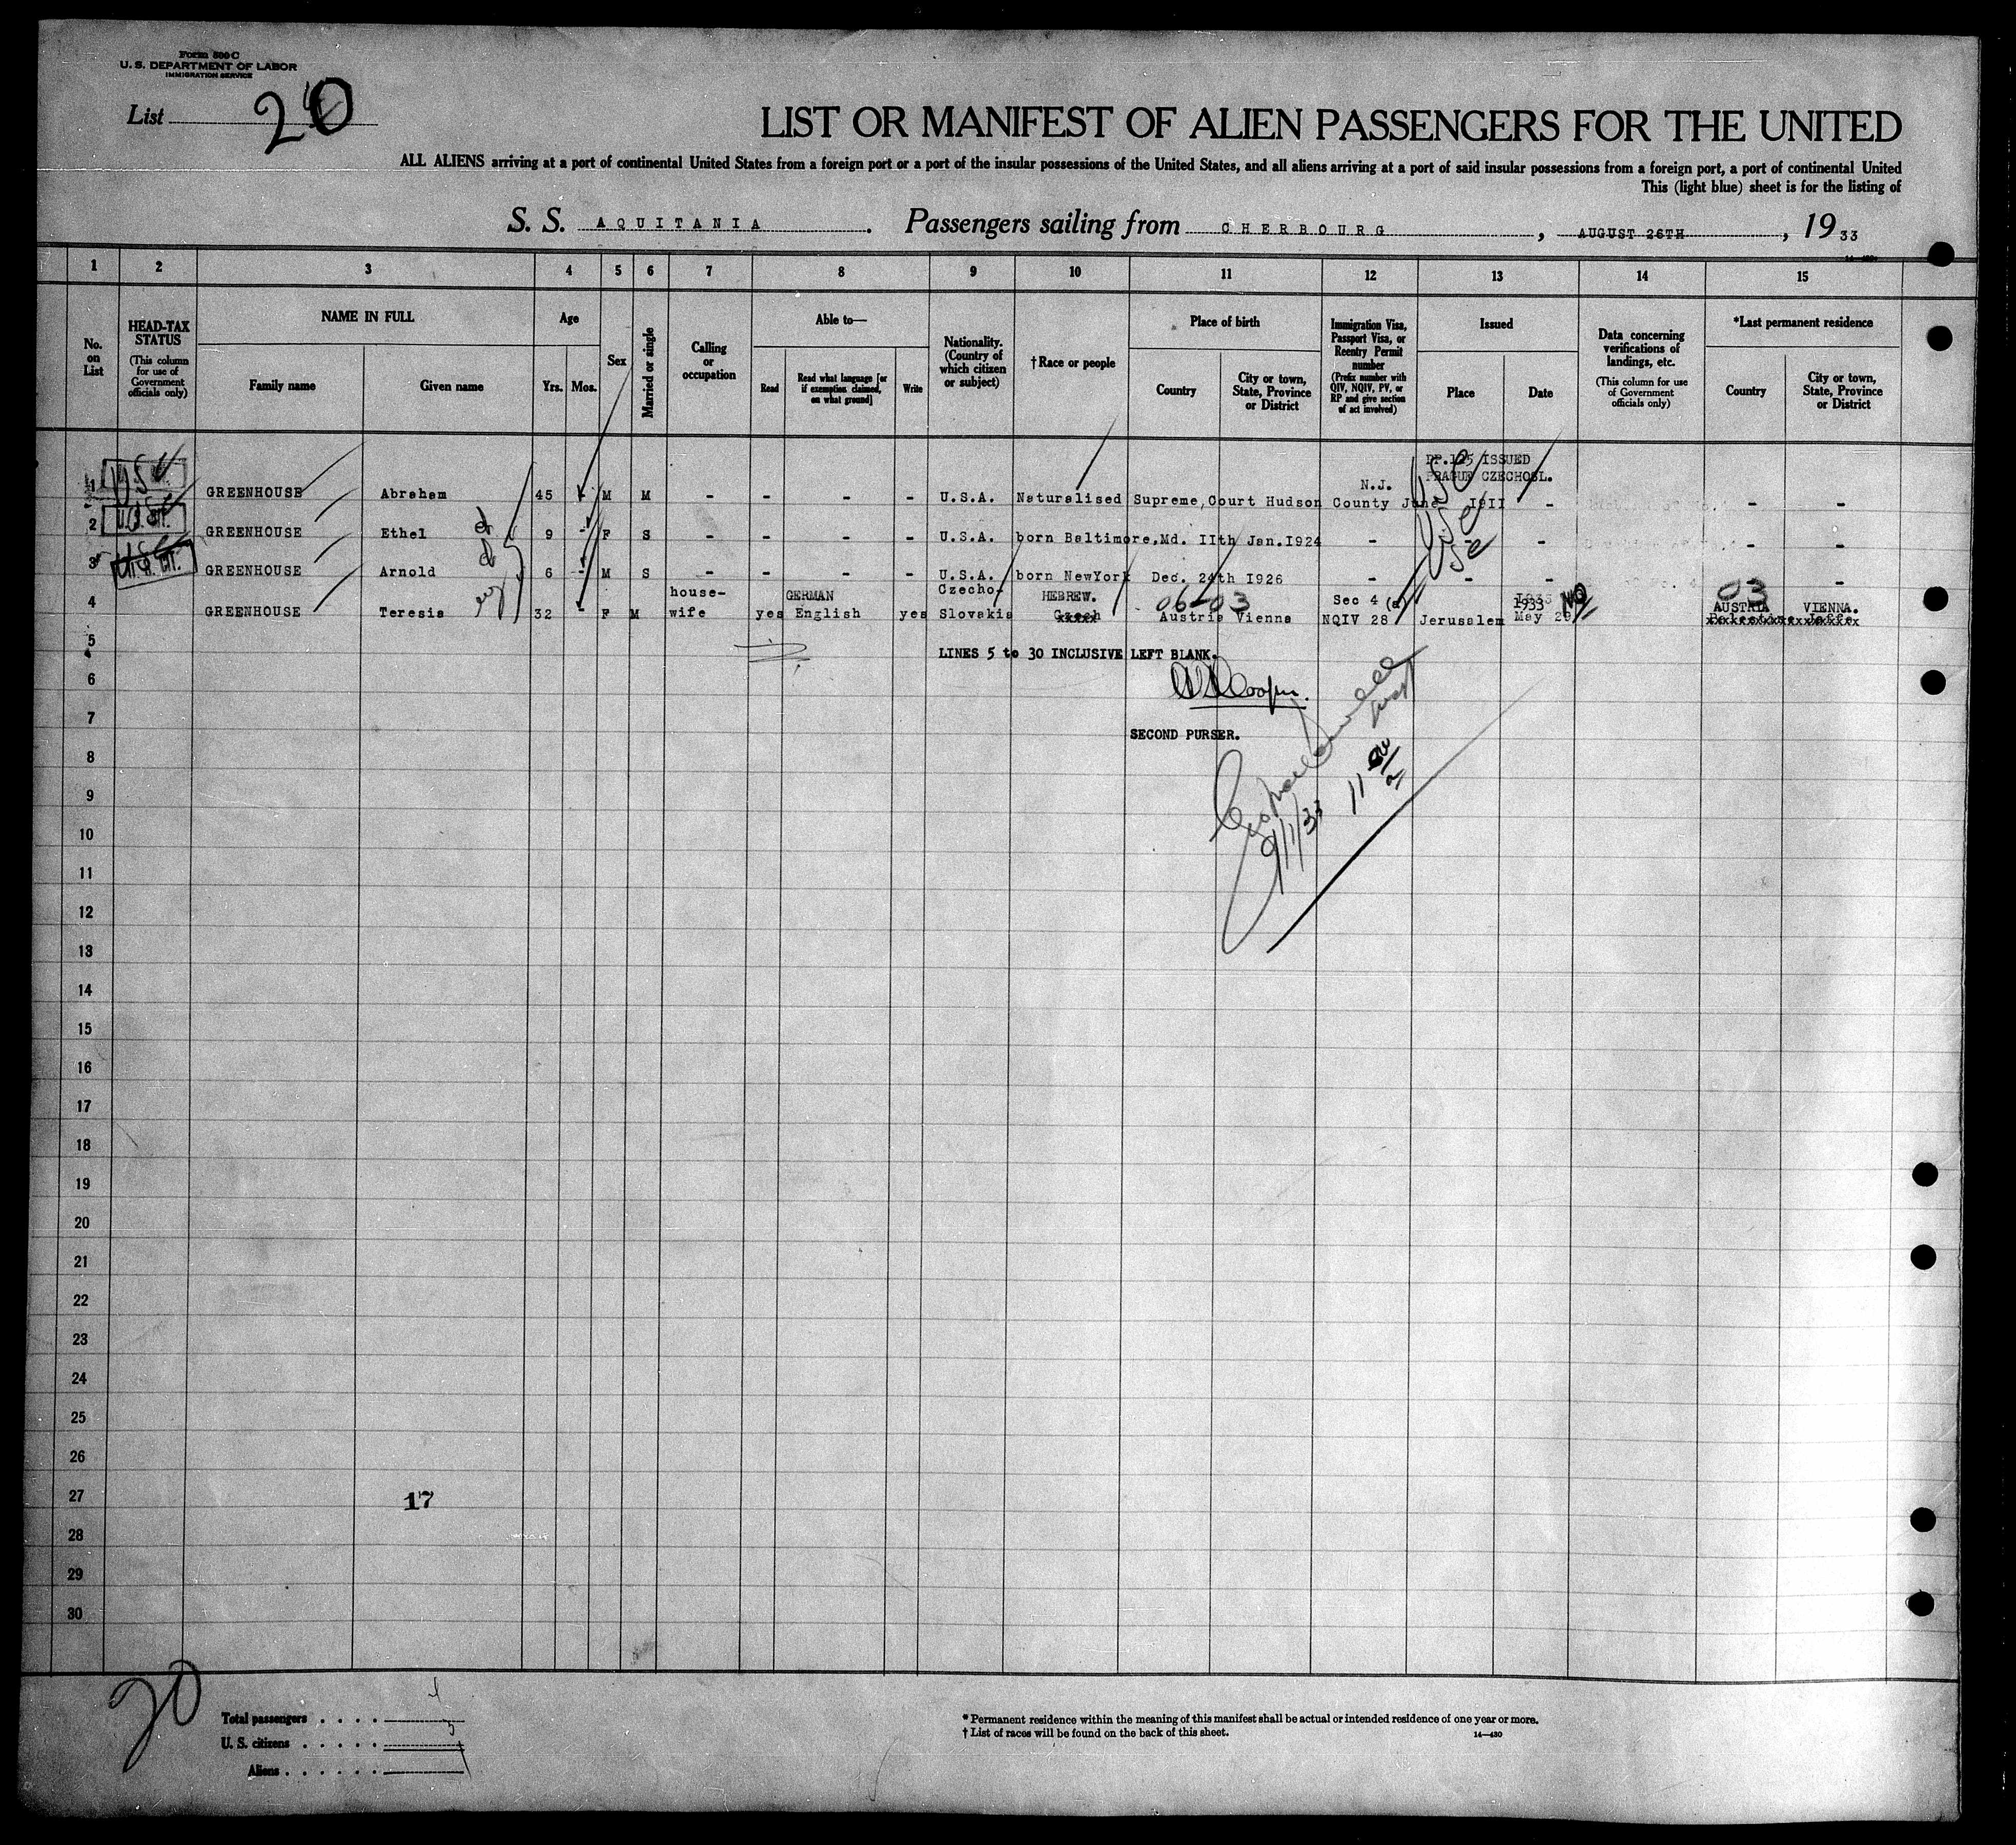 Form 500 C
U. S. DEPARTMENT OF LABOR
IMMIGRATION SERVICE
List 20
LIST OR MANIFEST OF ALIEN PASSENGERS FOR THE UNITED
ALL ALIENS arriving at a port of continental United States from a foreign port or a port of the insular possessions of the United States, and all aliens arriving at a port of said insular possessions from a foreign port, a port of continental United
This (light blue) sheet is for the listing of
S. S. AQUITANIA. Passengers sailing from CHERBOURG, AUGUST 26TH, 1933
1 2 3 4 5 6 7 8 9 10 11 12 13 14 15
No. on List
HEAD-TAX STATUS
(This column for use of Government officials only)
NAME IN FULL
Family name
Given name
Age
Yrs. Mos.
Sex
Married or single
Calling or occupation
Able to—
Read
Read what language [or if exemption claimed, on what ground]
Write
Nationality. (Country of which citizen or subject)
†Race or people
Place of birth
Country
City or town, State, Province or District
Immigration Visa, Passport Visa, or Reentry Permit number
(Prefix number with QIV, NQIV, PV, or RP and give section of act involved)
Issued
Place
Date
Data concerning verifications of landings, etc.
(This column for use of Government officials only)
*Last permanent residence
Country
City or town, State, Province or District
PP.125 ISSUED
PRAGUE CZECHOSL.
N.J.
1 GREENHOUSE Abraham 45 - M M - - - - U.S.A. Naturalised Supreme, Court Hudson County June I9II - - -
2 GREENHOUSE Ethel 9 - F S - - - - U.S.A. born Baltimore, Md. IIth Jan. I924 - - - - -
3 GREENHOUSE Arnold 6 - M S - - - - U.S.A. born NewYork Dec. 24th I926 - - - - -
house- GERMAN Czecho- HEBREW. 06-03 Sec 4 (a) 1933 NQ 03 AUSTRIA VIENNA.
4 GREENHOUSE Teresia 32 - F M wife yes English yes Slovakia Czech Austria Vienna NQIV 28 Jerusalem May 29
5 LINES 5 to 30 INCLUSIVE LEFT BLANK.
6
7 SECOND PURSER.
8
9
10 9/1/33
11
12
13
14
15
16
17
18
19
20
21
22
23
24
25
26
27 17
28
29
30
20
Total passengers . . . . 4
U. S. citizens . . . . . 3
Aliens . . . . . . 1
* Permanent residence within the meaning of this manifest shall be actual or intended residence of one year or more.
† List of races will be found on the back of this sheet.
14—430